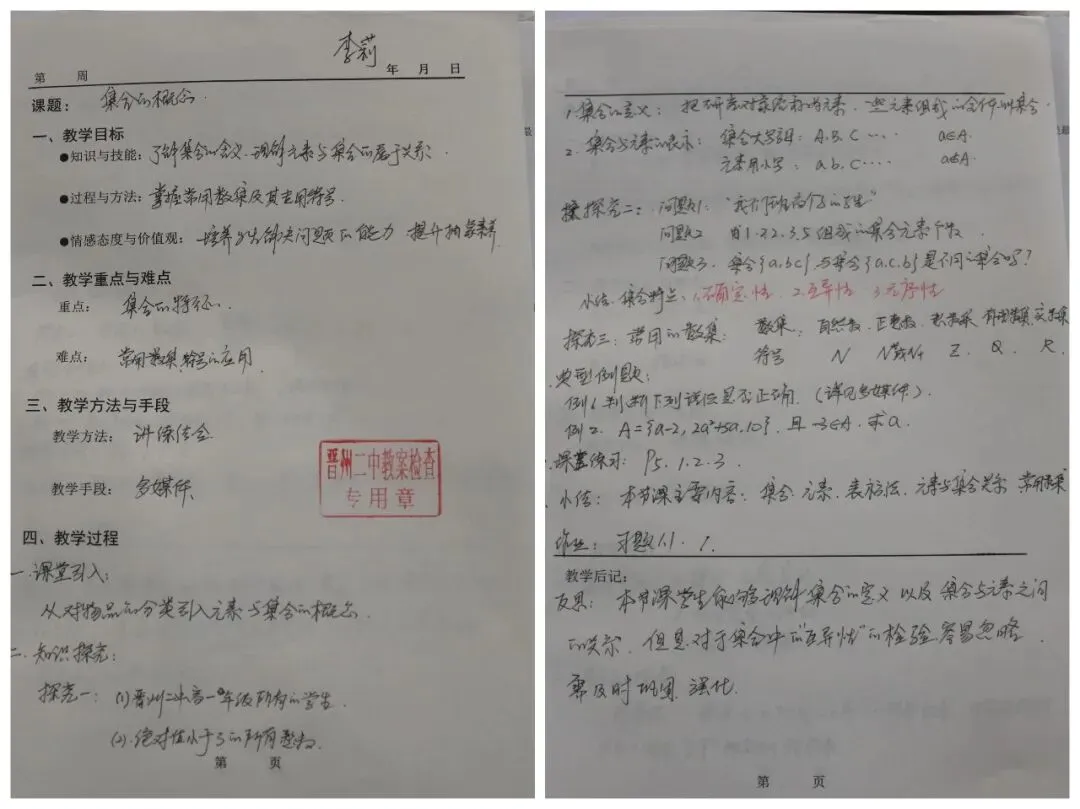 李莉
第 周 年 月 日
课题: 集合的概念.
一、教学目标
●知识与技能: 了解集合的含义.理解元素与集合的属于关系.
●过程与方法: 掌握常用数集及其专用符号.
●情感态度与价值观: 培养学生解决问题的能力 提升抽象素养
二、教学重点与难点
重点: 集合的特征.
难点: 常用数集.符号的应用
三、教学方法与手段
教学方法: 讲练结合.
教学手段: 多媒体.
晋州二中教案检查
专用章
四、教学过程
一.课堂引入:
从对物品的分类引入元素与集合的概念.
二.知识探究:
探究一: (1)晋州二中高一年级所有的学生.
(2).绝对值小于3的所有整数.
第 页
1.集合的定义: 把研究对象统称为元素.一些元素组成的全体叫集合.
2.集合与元素的表示: 集合大写字母: A.B.C.... a∈A.
元素用小写: a.b.c.... a∉A.
探究二: 问题1: "我们班高个子的学生"
问题2 由1.2.3.5组成的集合元素个数.
问题3. 集合{a.b.c}与集合{a.c.b}是不同的集合吗?
小结.集合特点: 1.确定性 2.互异性 3.无序性
探究三: 常用的数集: 数集: 自然数.正整数.整数集.有理数集.实数集
符号 N N*或N+ Z. Q. R.
典型例题:
例1.判断下列说法是否正确.(详见多媒体).
例2. A={a-2, 2a²+5a, 10}, 且-3∈A. 求a.
课堂练习: P5.1.2.3.
小结: 本节课主要内容: 集合.元素.表示方法.元素与集合关系 常用数集
作业: 习题1.1. 1.
教学后记:
反思: 本节课学生能够理解集合的定义以及集合与元素之间
的关系.但是对于集合中的"互异性"的检验容易忽略.
需及时巩固.强化.
第 页